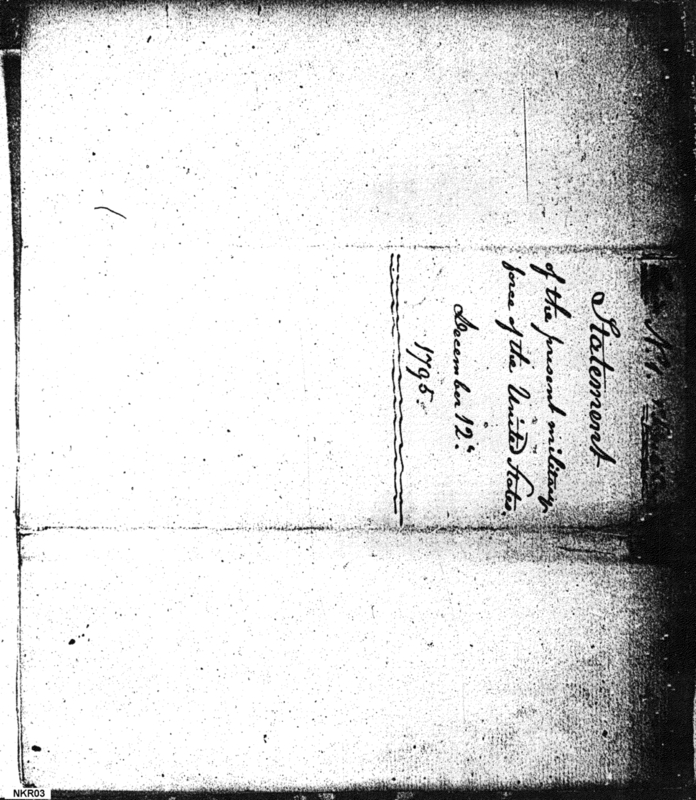 Statement
of the present military
force of the United States.
December 12th
1795.
NKR03